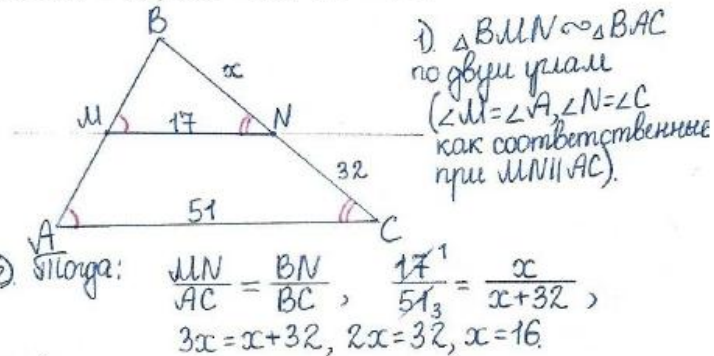 B
x
M
17
N
32
A
51
C
1). △BMN ∾ △BAC
по двум углам
(∠M=∠A, ∠N=∠C
как соответственные
при MN∥AC).
2) Тогда: MN/AC = BN/BC, 17¹/51₃ = x/(x+32),
3x=x+32, 2x=32, x=16.